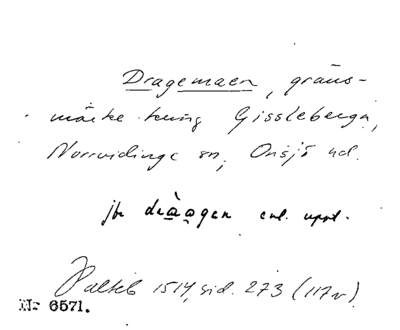 Dragemaen, gräns-
märke kring Gissleberga,
Norrvidinge sn, Onsjö hd.
jfr dràagen enl. uppt.
Palteb 1514, sid. 273 (117 v)
Nr 6571.